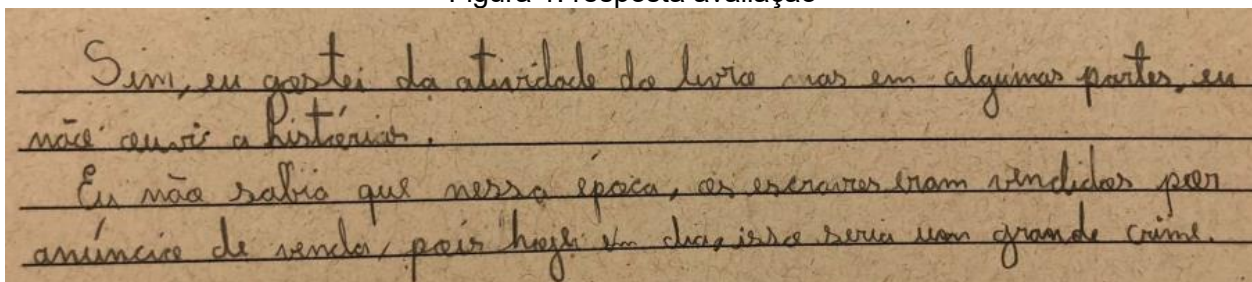 Sim, eu gostei da atividade do livro mas em algumas partes, eu
não ouvi a história.
Eu não sabia que nessa época, os escravos eram vendidos por
anúncio de venda, pois hoje em dia, isso seria um grande crime.